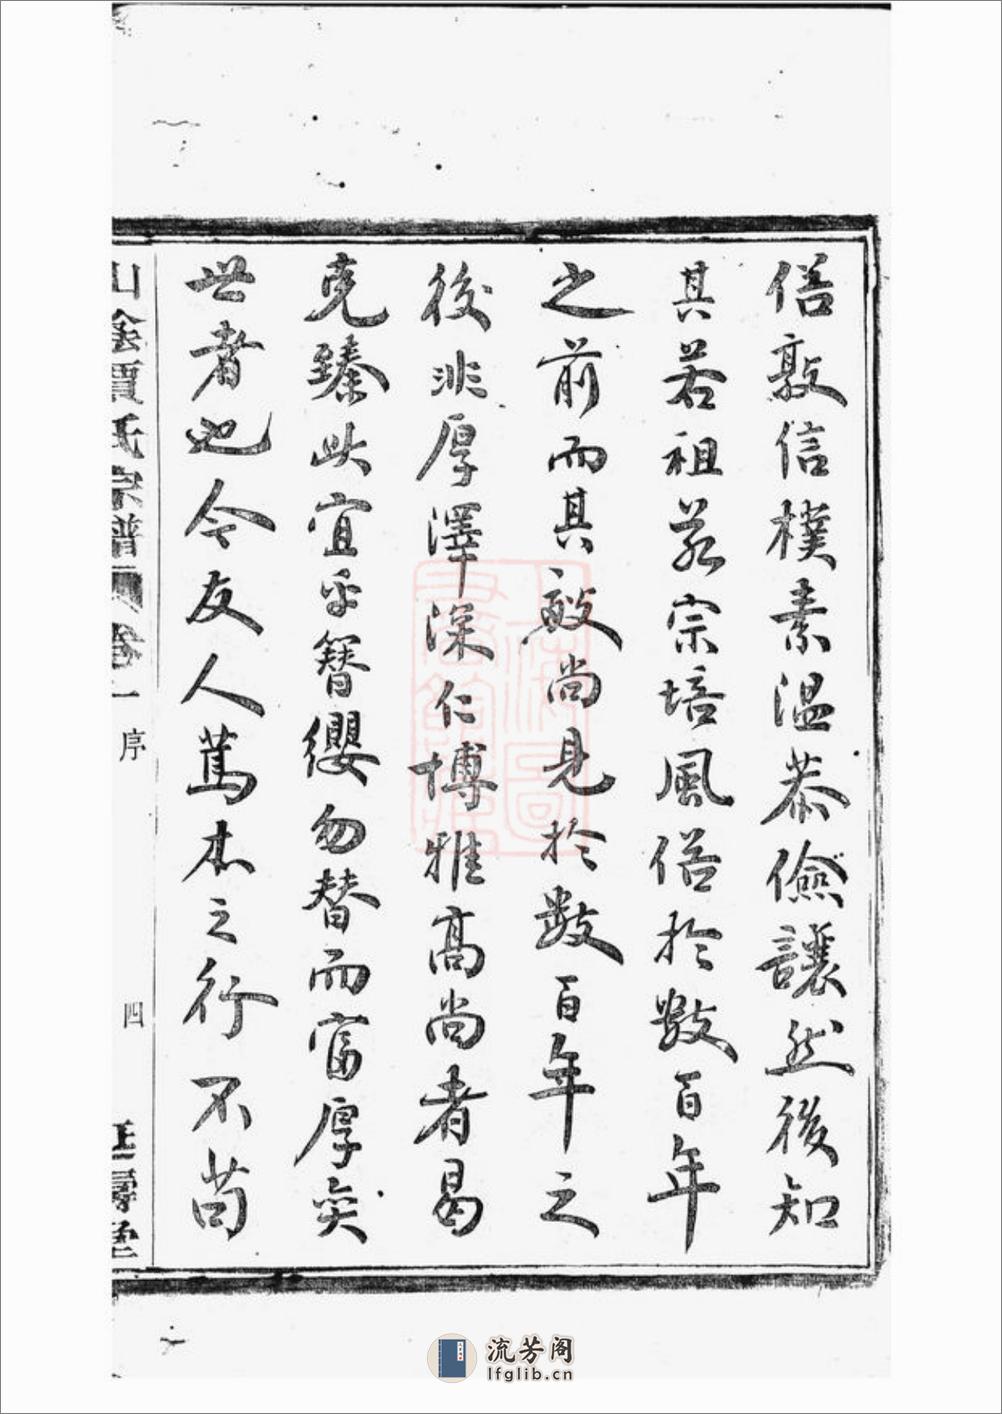 俗敦信樸素溫恭儉讓然後知
其若祖若宗培風俗於數百年
之前而其效尚見於數百年之
後非厚澤深仁博雅高尚者曷
克臻此宜乎簪纓勿替而富厚奕
世者也令友人篤本之行不苟
山陰賈氏宗譜 卷一 序 四 壽堂
上海圖書館藏
流芳阁
lfglib.cn